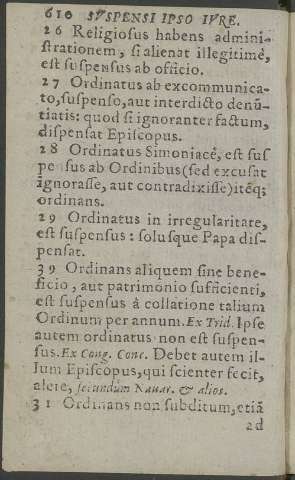 610 SVSPENSI IPSO IVRE.
26 Religiosus habens admini-
strationem, si alienat illegitimè,
est suspensus ab officio.
27 Ordinatus ab excommunica-
to, suspenso, aut interdicto denũ-
tiatis: quod si ignoranter factum,
dispensat Episcopus.
28 Ordinatus Simoniacè, est sus
pensus ab Ordinibus (sed excusat
ignorasse, aut contradixisse) itéq;
ordinans.
29 Ordinatus in irregularitate,
est suspensus: solusque Papa dis-
pensat.
39 Ordinans aliquem sine bene-
ficio, aut patrimonio sufficienti,
est suspensus à collatione talium
Ordinum per annum. Ex Trid. Ipse
autem ordinatus non est suspen-
sus. Ex Cong. Conc. Debet autem il-
lum Episcopus, qui scienter fecit,
alere, secundùm Nauar. & alios.
31 Ordinans non subditum, etiã
ad